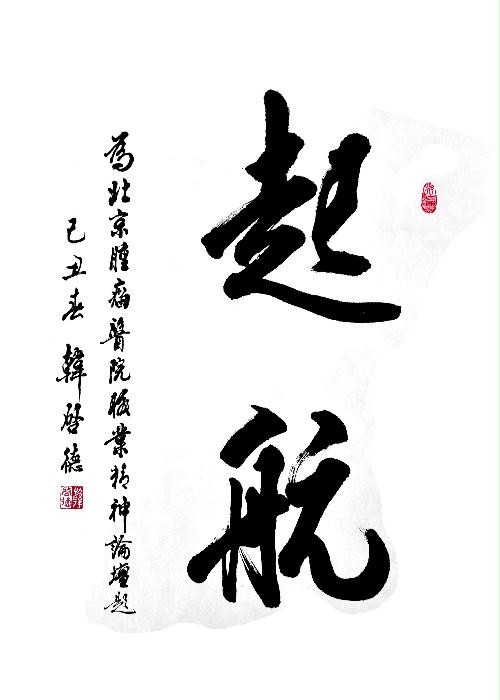 起航
為北京腫瘤醫院職業精神論壇題
己丑春 韓啓德